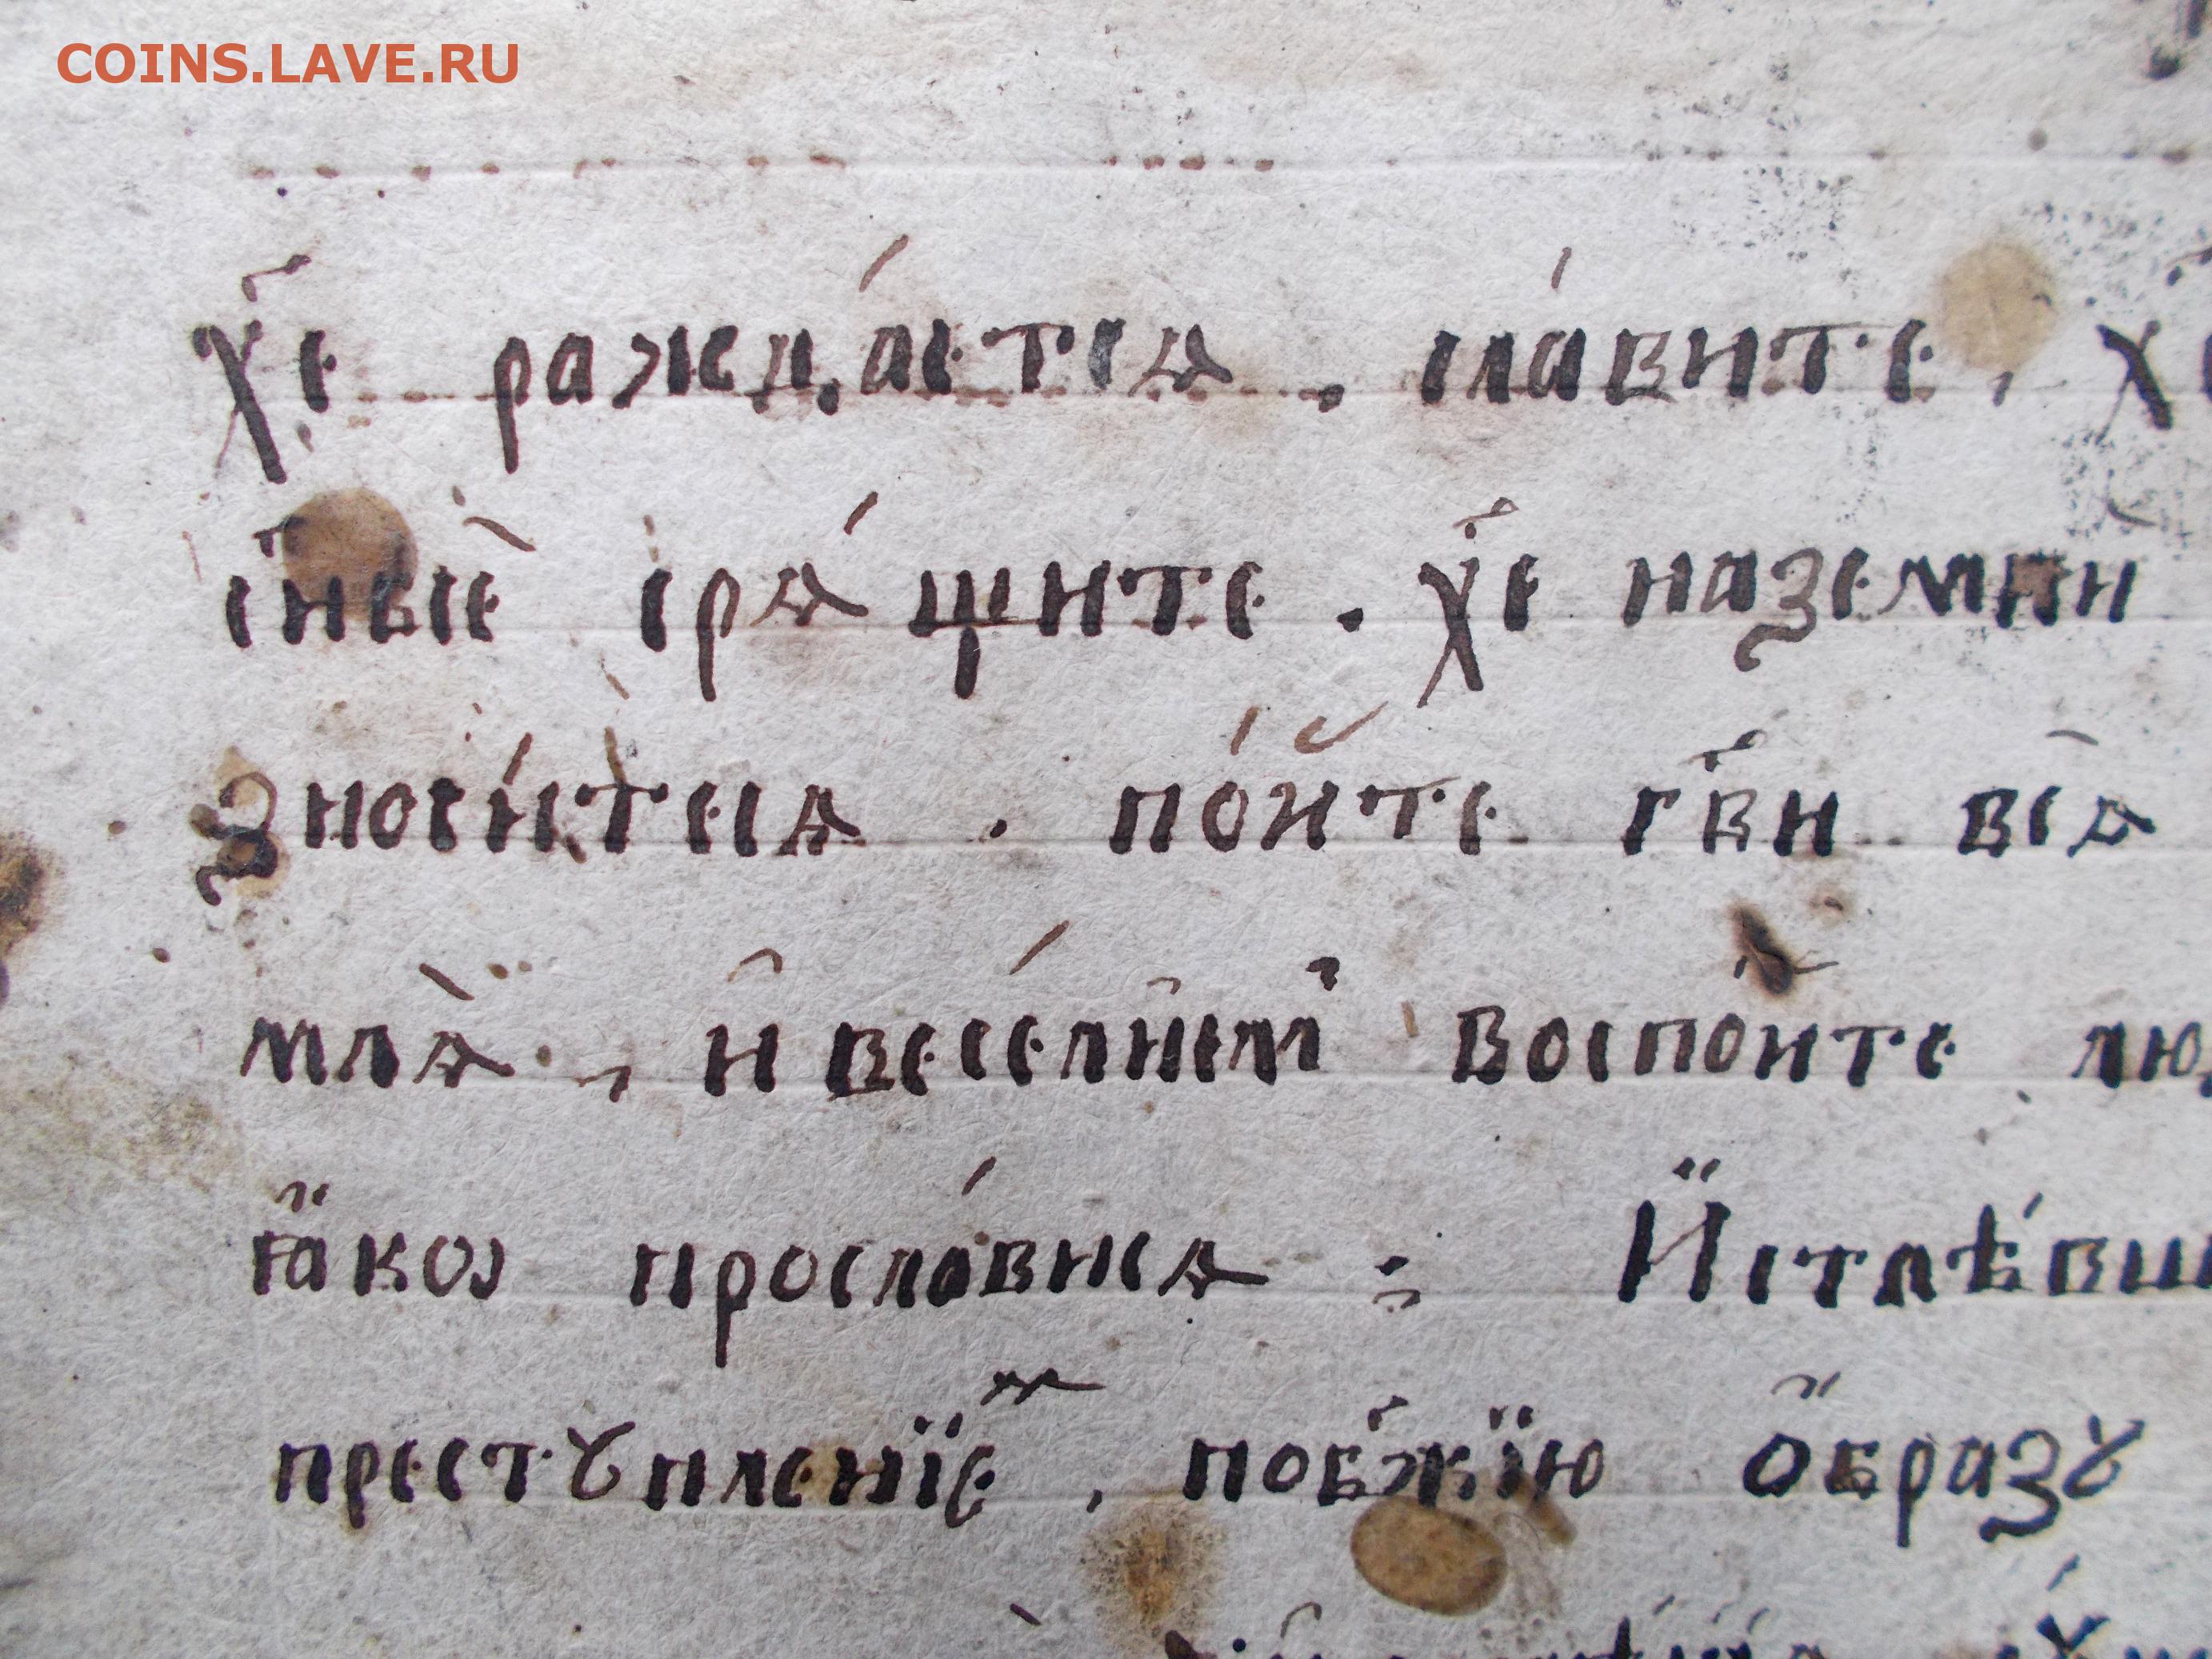 COINS.LAVE.RU
х҃е ражда́етсѧ , сла́вите , х҃
сн҃ые срѧ́щите . х҃е наземли
зноси́тесѧ . по́йте гв҃и всѧ̀
млѧ̀ , и҆ весе́лием воспойте
ꙗ҆кѡ просла́висѧ : И҆стлѣ́вш
престꙋпленїем , побж҃їю ѻ҆бразꙋ